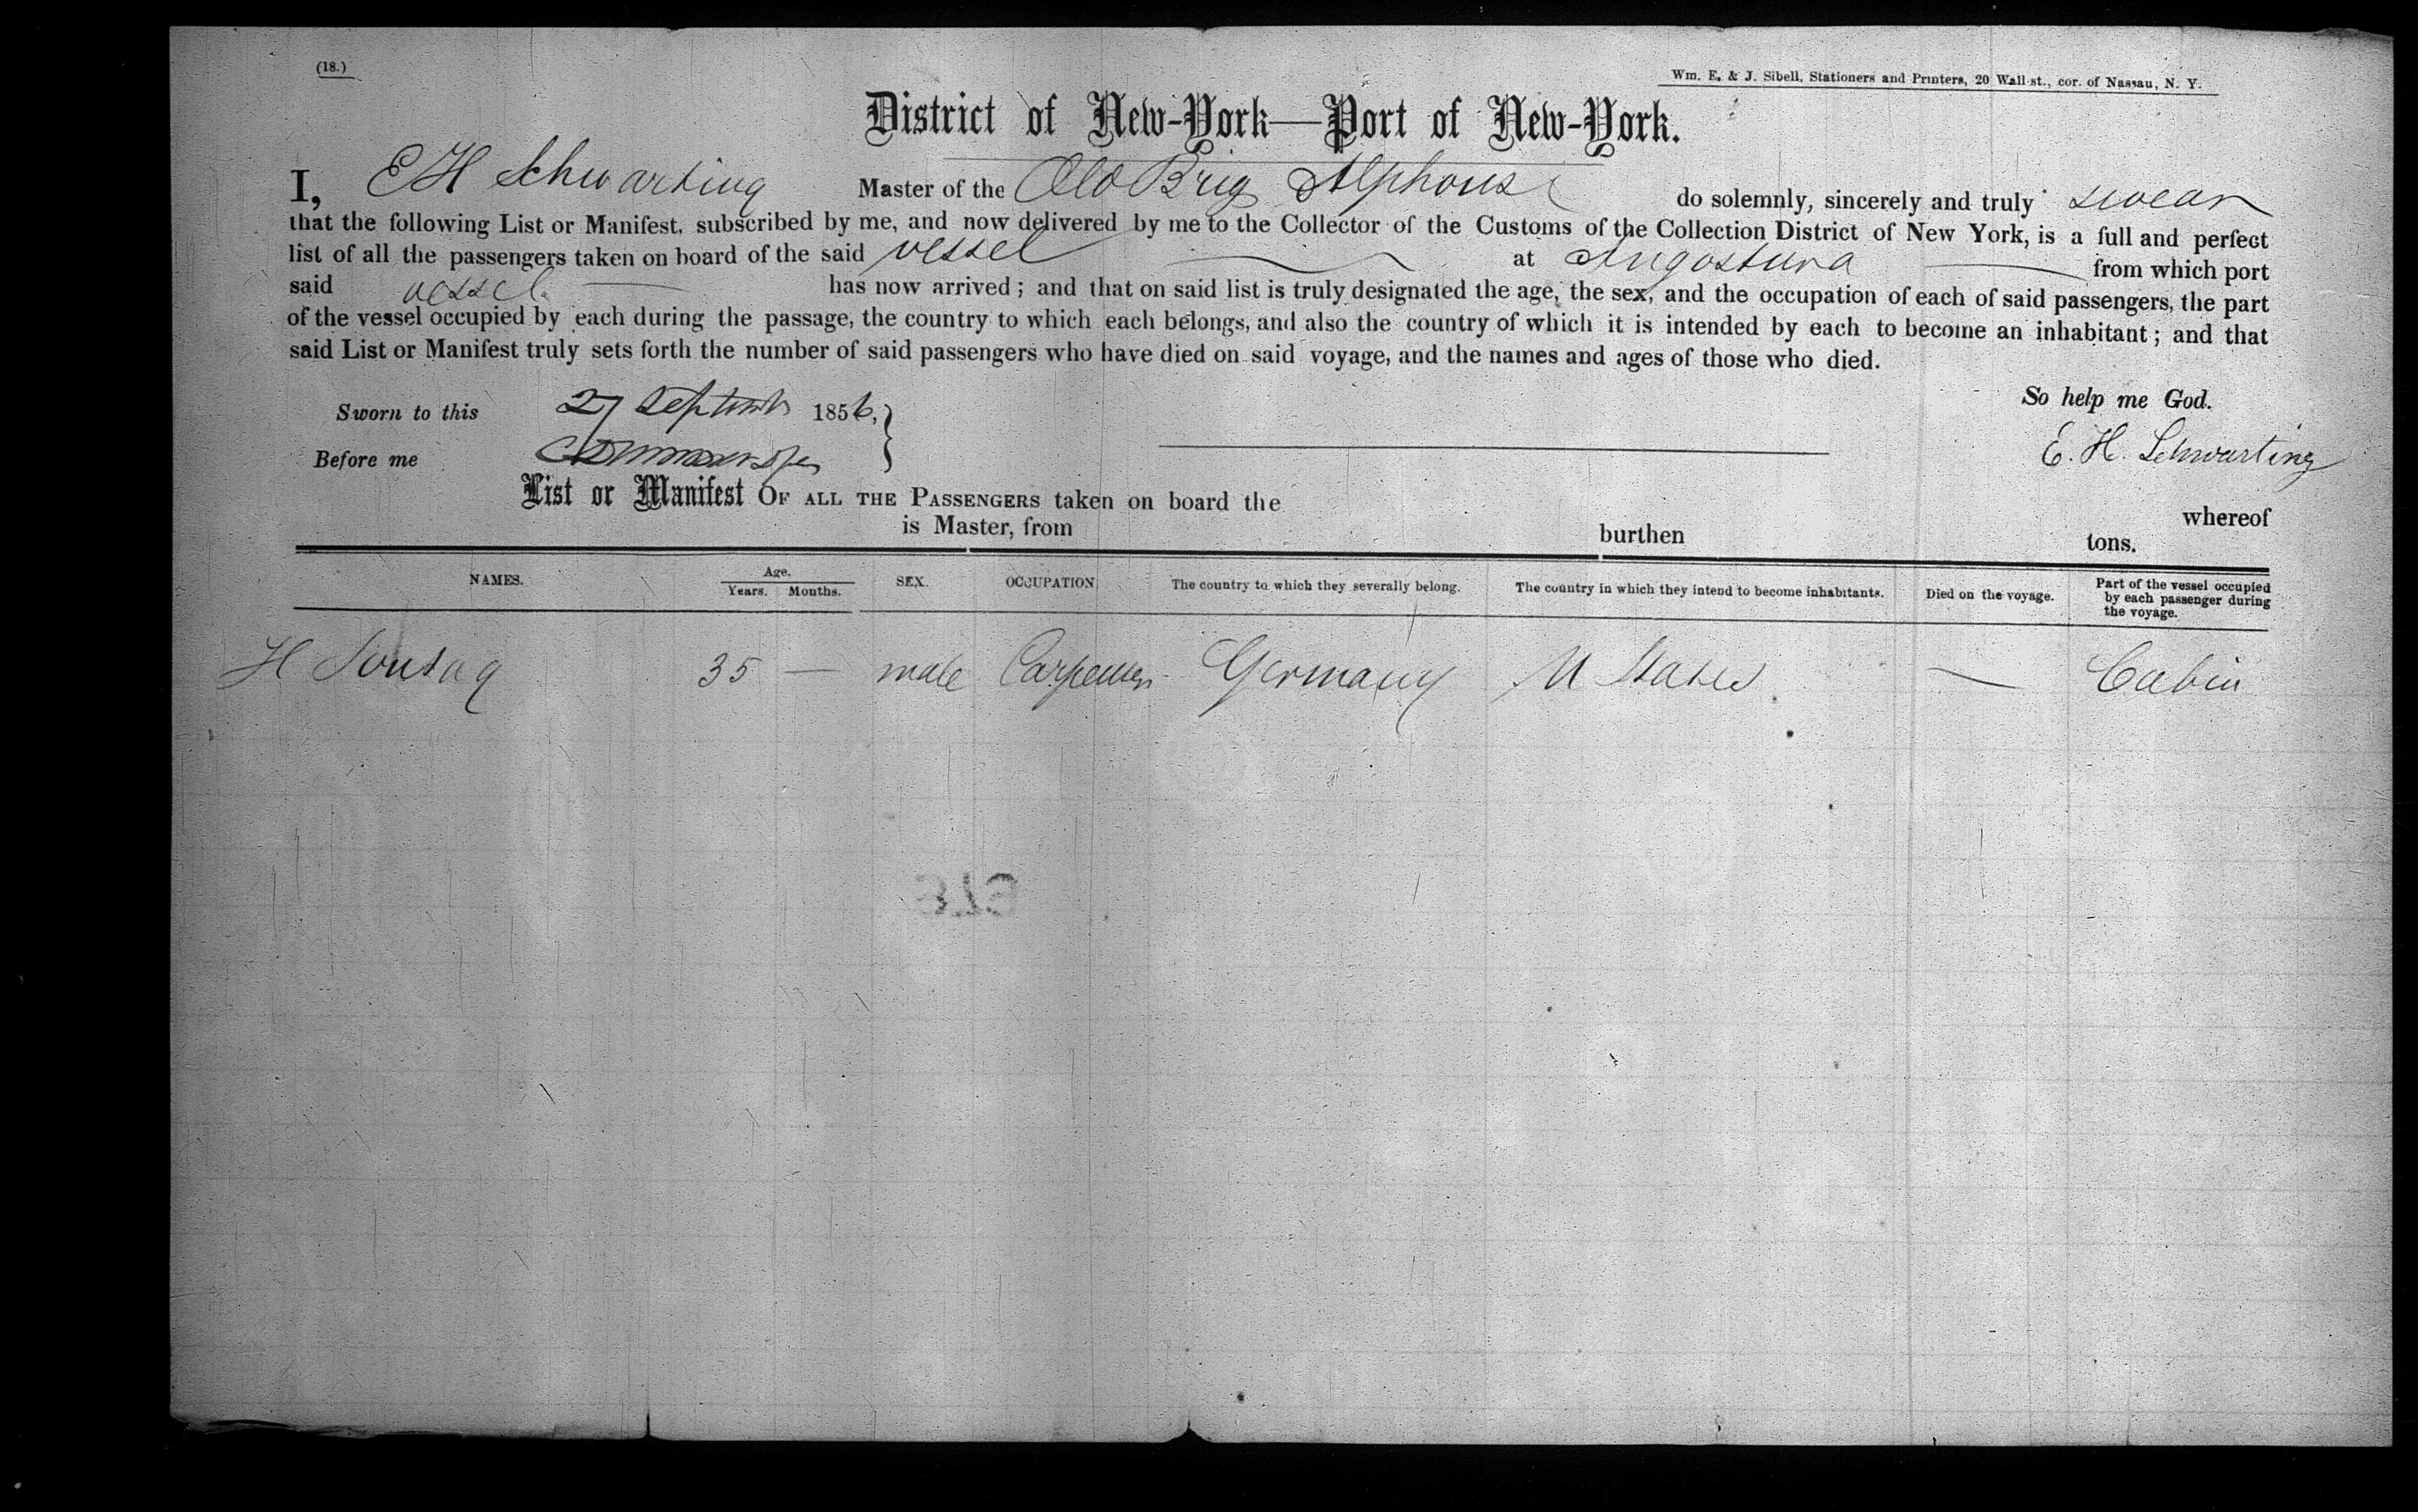 (18.)
Wm. E. & J. Sibell, Stationers and Printers, 20 Wall-st., cor. of Nassau, N. Y.
District of New-York—Port of New-York.
I, E H Schwarting Master of the Old Brig Alphonse do solemnly, sincerely and truly swear
that the following List or Manifest, subscribed by me, and now delivered by me to the Collector of the Customs of the Collection District of New York, is a full and perfect
list of all the passengers taken on board of the said vessel at Angostura from which port
said vessel has now arrived; and that on said list is truly designated the age, the sex, and the occupation of each of said passengers, the part
of the vessel occupied by each during the passage, the country to which each belongs, and also the country of which it is intended by each to become an inhabitant; and that
said List or Manifest truly sets forth the number of said passengers who have died on said voyage, and the names and ages of those who died.
Sworn to this 27 September 1856, So help me God.
Before me E. H. Schwarting
List or Manifest OF ALL THE PASSENGERS taken on board the whereof
is Master, from burthen tons.
NAMES. Age. Years. Months. SEX. OCCUPATION. The country to which they severally belong. The country in which they intend to become inhabitants. Died on the voyage. Part of the vessel occupied by each passenger during the voyage.
H Sontag 35 — male Carpenter Germany U States — Cabin